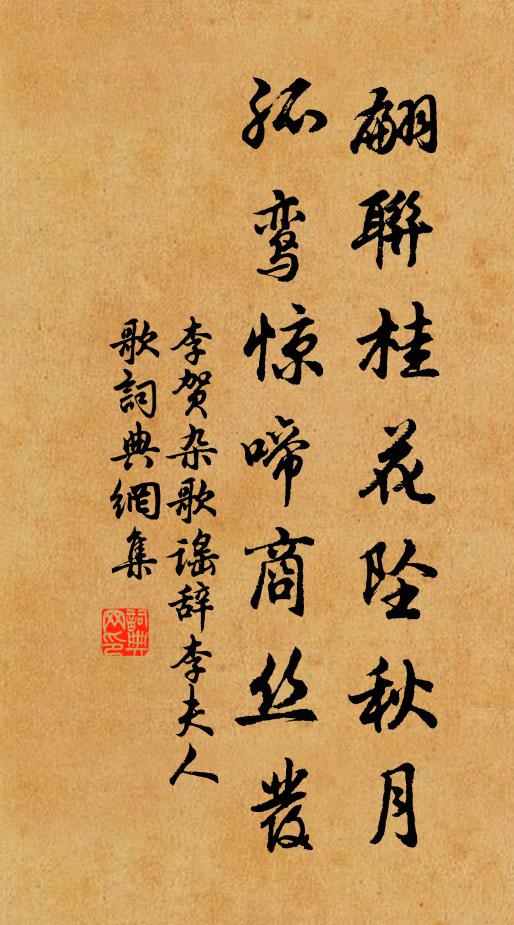 翩聯桂花坠秋月
孤鸾惊啼商丝發
李贺杂歌謠辞李夫人
歌詞典網集
詞典
网印